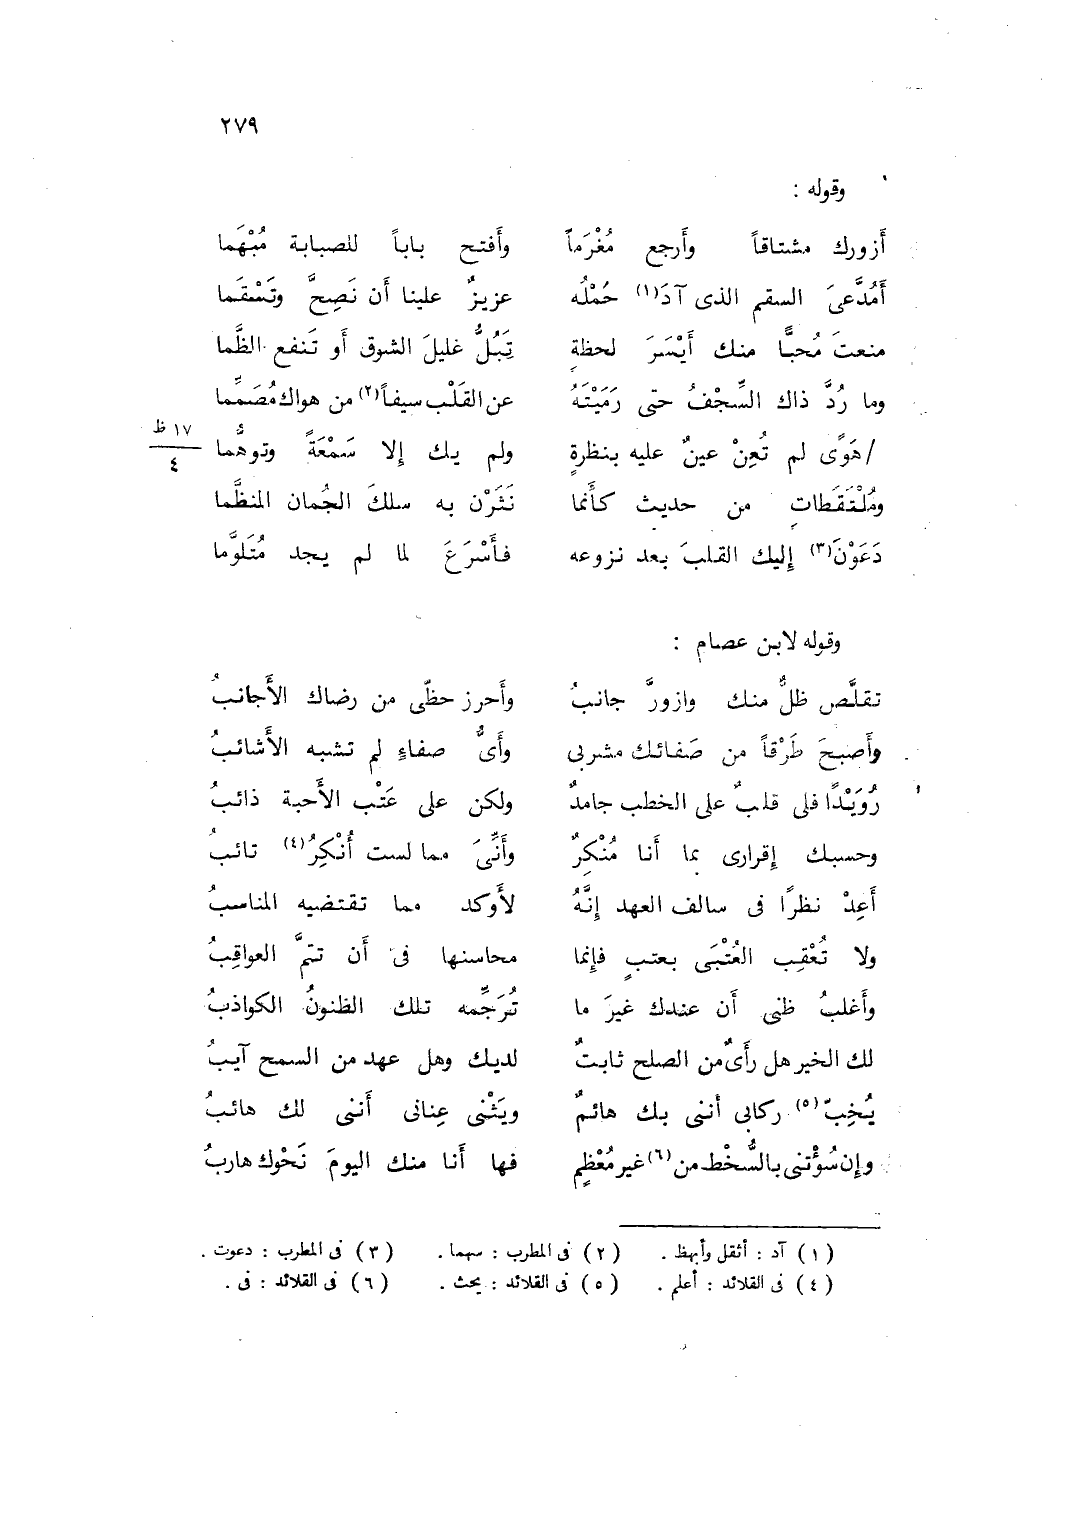 ٢٧٩
وقوله :
أَزورك مشتاقاً وأَرجع مُغْرَماً وأَفتح باباً للصبابة مُبْهَما
أَمُدَّعىَ السقم الذى آدَ(١) حَمْلُه عزيزٌ علينا أَن نَصِحَّ وتَسْقَما
منعتَ مُحبًّا منك أَيْسَرَ لحظةٍ تَبُلُّ غليلَ الشوق أَو تَنفع الظَّما
وما رُدَّ ذاك السِّجْفُ حتى رَمَيْتَهُ عن القَلْب سيفاً(٢) من هواك مُصَمِّما
/هَوًى لم تُعِنْ عينٌ عليه بنظرةٍ ولم يك إلا سَمْعَةً وتوهُّما
١٧ ظ
٤
ومُلْتَقَطاتٍ من حديث كأَنما نَثَرْن به سلكَ الجُمان المنظَّما
دَعَوْنَ(٣) إليك القلبَ بعد نزوعه فأَسْرَعَ لما لم يجد مُتَلَوَّما
وقوله لابن عصام :
تقلَّص ظلٌّ منك وازورَّ جانبُ وأَحرز حظِّى من رضاك الأَجانبُ
وأَصبحَ طَرْقاً من صَفائك مشربى وأَىُّ صفاءٍ لم تشبه الأَشائبُ
رُوَيْدًا فلى قلبٌ على الخطب جامدٌ ولكن على عَتْب الأَحبة ذائبُ
وحسبك إقرارى بما أَنا مُنْكِرٌ وأَنِّىَ مما لست أُنْكِرُ(٤) تائبُ
أَعِدْ نظرًا فى سالف العهد إنَّهُ لأَوكد مما تقتضيه المناسبُ
ولا تُعْقِب العُتْبَى بعتبٍ فإنما محاسنها فى أَن تتمَّ العواقِبُ
وأَغلبُ ظنى أن عندك غيرَ ما تُرَجِّمه تلك الظنونُ الكواذبُ
لك الخير هل رأَىٌ من الصلح ثابتٌ لديك وهل عهد من السمح آيبُ
يُخِبّ(٥) ركابى أننى بك هائمٌ ويَثْنى عِنانى أَننى لك هائبُ
وإن سُؤْتنى بالسُّخْط من(٦) غير مُعْظِمٍ فها أَنا منك اليومَ نَحْوك هاربُ
(١) آد : أثقل وأبهظ . (٢) فى المطرب : سهما . (٣) فى المطرب : دعوت .
(٤) فى القلائد : أعلم . (٥) فى القلائد : يحث . (٦) فى القلائد : فى .